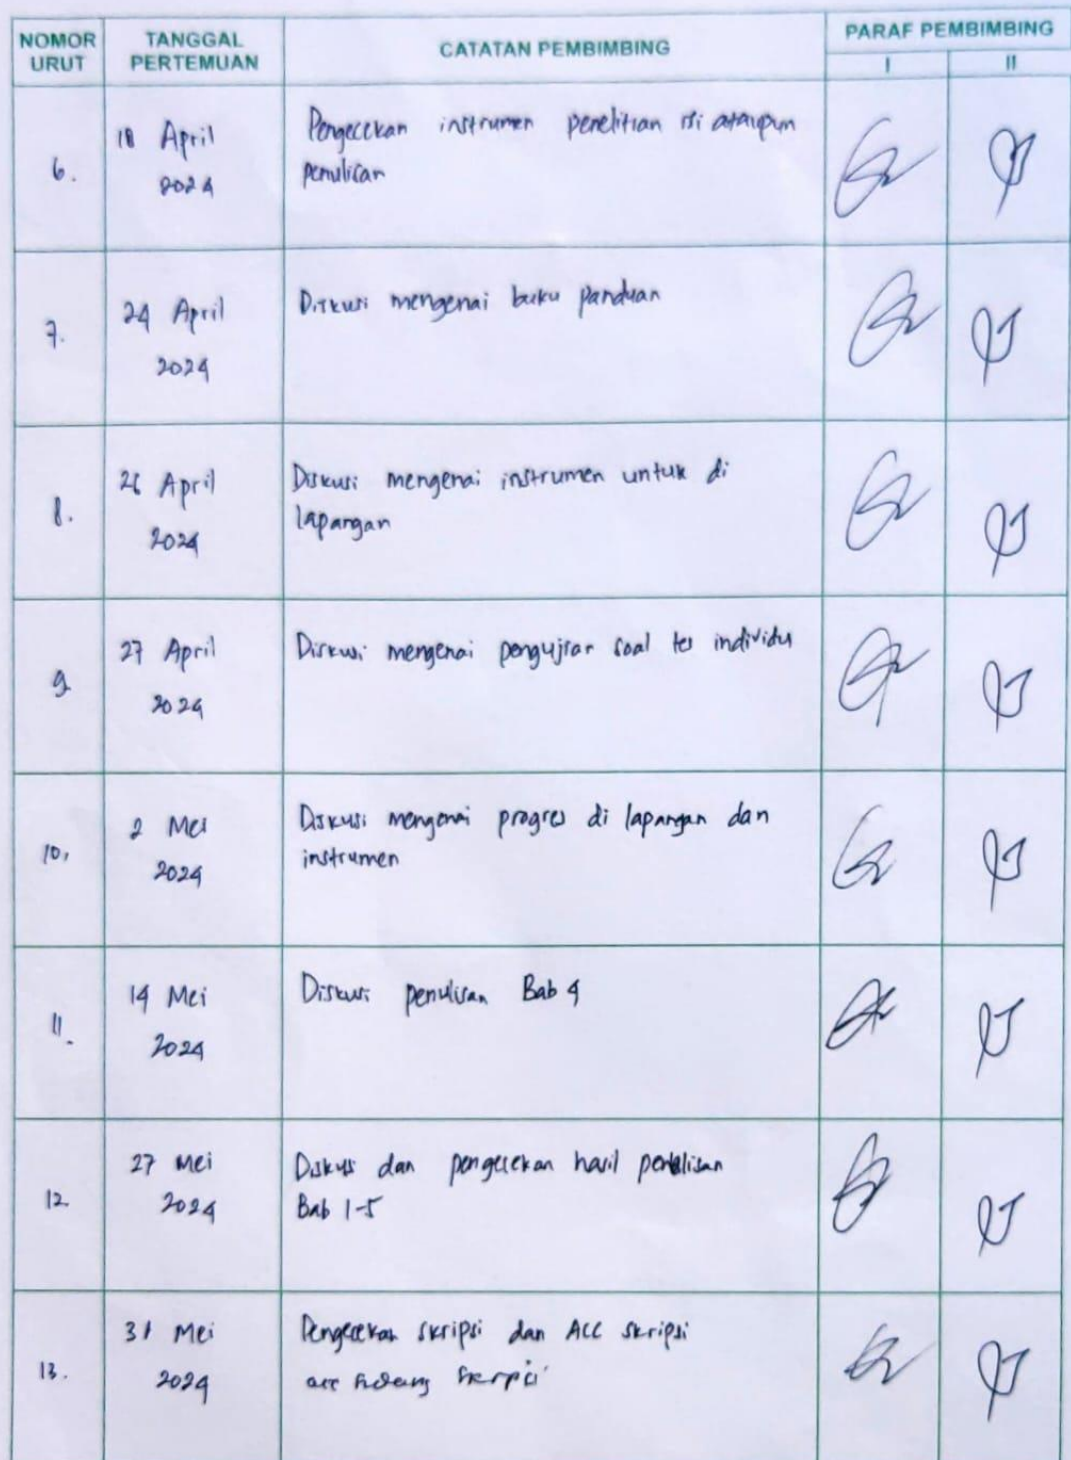 NOMOR URUT TANGGAL PERTEMUAN CATATAN PEMBIMBING PARAF PEMBIMBING
I II
6. 18 April 2024 Pengecekan instrumen penelitian isi ataupun
penulisan
7. 24 April 2024 Diskusi mengenai buku panduan
8. 26 April 2024 Diskusi mengenai instrumen untuk di
lapangan
9. 27 April 2024 Diskusi mengenai pengujian soal tes individu
10. 2 Mei 2024 Diskusi mengenai progres di lapangan dan
instrumen
11. 14 Mei 2024 Diskusi penulisan Bab 4
12. 27 Mei 2024 Diskusi dan pengecekan hasil penulisan
Bab 1-5
13. 31 Mei 2024 Pengecekan skripsi dan ACC skripsi
acc sidang skripsi